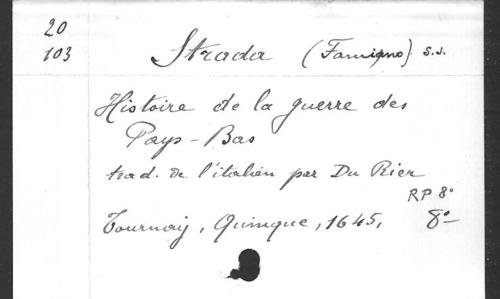 20
103
Strada (Famiano) S.J.
Histoire de la guerre des
Pays-Bas
trad. de l'italien par Du Rier
RP 8°
Tournay, Quinque, 1645, 8°